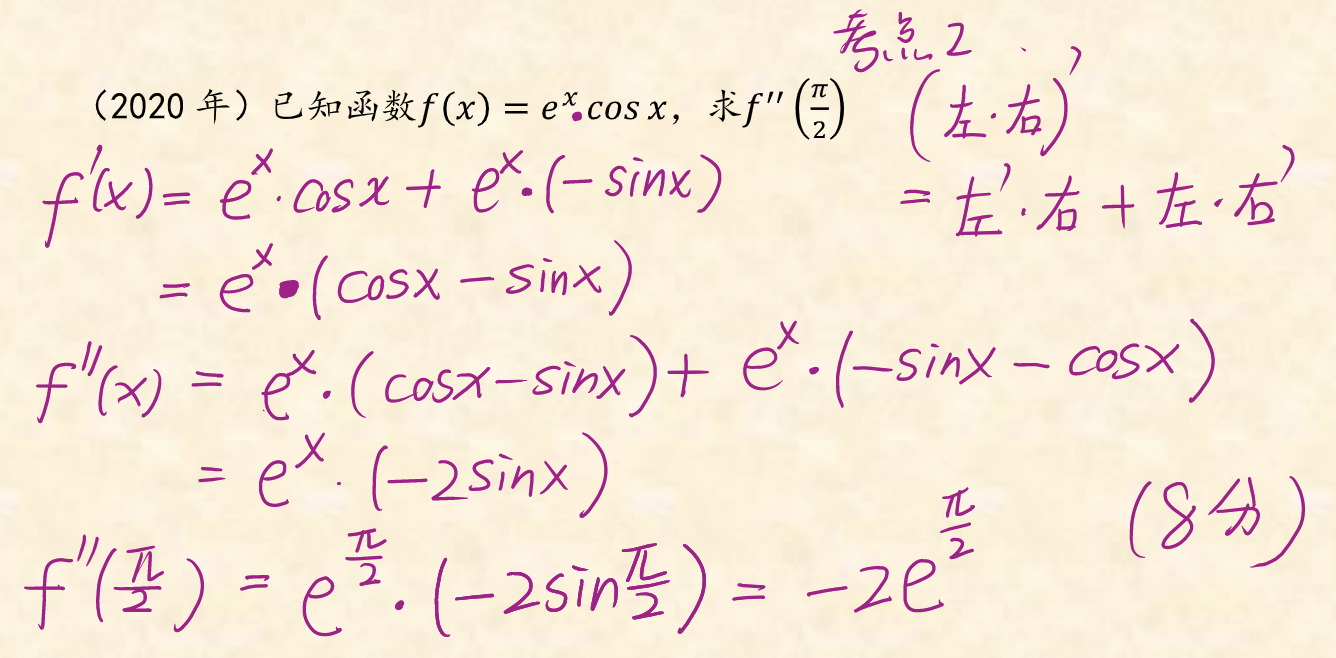 考点2
（2020 年）已知函数f(x) = eˣ·cos x，求f″(π/2)
(左·右)′
= 左′·右 + 左·右′
f′(x) = eˣ·cosx + eˣ·(-sinx)
= eˣ·(cosx - sinx)
f″(x) = eˣ·(cosx-sinx) + eˣ·(-sinx - cosx)
= eˣ·(-2sinx)
(8分)
f″(π/2) = e^(π/2)·(-2sin π/2) = -2e^(π/2)